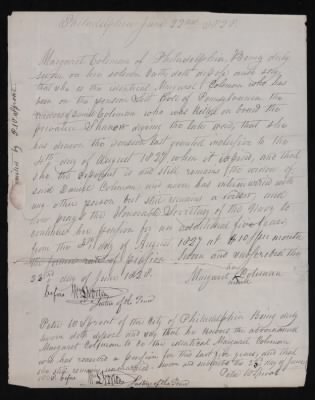 Philadelphia June 23rd 1828.
Margaret Coleman of Philadelphia, Being duly
sworn on her solemn Oath doth depose and say
that she is the identical Margaret Coleman who has
been on the pension List Role of Pennsylvania the
widow of Coleman who was killed on board the
privateer during the late war, that she
has drawn the pension last granted
day of August 1827 when it expired, and that
she the is and still remains the widow of
said Coleman, and never has intermarried with
any other person but still remains a widow, and
now prays the Honorable Secretary of the Navy to
continue her pension for an additional five years,
from the day of August 1827 at $10 per month
the former rate of pension Sworn and subscribed this
23rd day of June 1828.
her
Margaret Coleman
mark
before
Justice of the Peace
Peter W Sprout of the City of Philadelphia Being duly
sworn doth depose and say that he knows the abovenamed
Margaret Coleman to be the identical Margaret Coleman
who has received a pension for this last years, and that
she still remains unmarried. Sworn and subscribed this 23 day of June
before
Justice of the Peace
Peter W Sprout